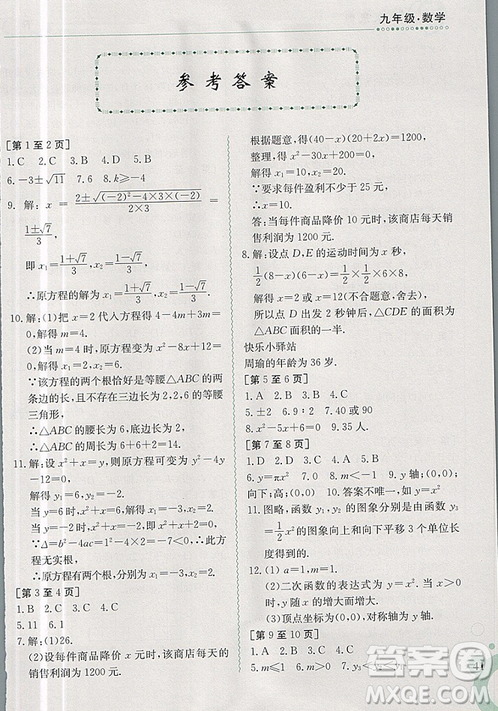 九年级·数学
参考答案
[第1至2页]
1.C 2.C 3.B 4.D 5.A
6.-3±√11 7.5 8.k≥-6
9.解:x=(2±√((-2)²-4×3×(-2)))/(2×3)=
(1±√7)/3
即x₁=(1+√7)/3,x₂=(1-√7)/3
∴原方程的解为x₁=(1+√7)/3,x₂=(1-√7)/3
10.解:(1)把x=2代入方程得4-4m+3m
=0,解得m=4.
(2)当m=4时,原方程变为x²-8x+12=
0,解得x₁=2,x₂=6.
∵该方程的两个根恰好是等腰△ABC的
两条边长,且不存在三边为2,2,6的等腰
三角形,
∴△ABC的腰为6,底边为2,
∴△ABC的周长为6+6+2=14.
11.解:设x²+x=y,原方程可变为y²-4y-12
=0,
解得y₁=6,y₂=-2.
当y=6时,x²+x=6,得x₁=-3,x₂=2.
当y=-2时,x²+x=-2,得方程x²+x+2=0,
∵Δ=b²-4ac=1²-4×2=-7<0,此
方程无实根,
∴原方程有两个根,分别为x₁=-3,x₂=2.
[第3至4页]
1.B 2.C 3.A 4.B
5.11 6.1
7.解:(1)26.
(2)设每件商品降价x元时,该商店每天
销售利润为1200元.
根据题意,得(40-x)(20+2x)=1200,
整理,得x²-30x+200=0,
解得x₁=10,x₂=20.
∵要求每件盈利不少于25元,
∴x=10.
答:当每件商品降价10元时,该商店每天销
售利润为1200元.
8.解:设点D,E的运动时间为x秒,
1/2(8-x)(6-x)=1/2×1/2×6×8,
解得x₁=2,x₂=12(不合题意,舍去).
∴点D,E出发2秒钟后,△CDE的面积
为△ABC面积的一半.
快乐小驿站
周瑜的年龄为36岁.
[第5至6页]
1.D 2.B 3.B 4.C
5.±2 6.9∶2 8.x²-5x+6=0 9.35人.
[第7至8页]
1.A 2.D 3.A 4.D 5.C
6.y=πx² 7.m<-1 8.y₃<y₁<y₂ 9.
向下;高;(0,1) 10.答案不唯一,如y=-2x²
11.解:函数y₂,y₃的图象分别是由函数y₁
=1/2x²的图象向上和向下平移3个单位
长度得到的.
12.略,(1)m=-1.
(2)二次函数的表达式为y=-2x²,当x
<0时,y随x增大而增大.
(3)顶点坐标为(0,0),对称轴为y轴.
[第9至10页]
1.B 2.B 3.C 4.D
5.m≤1 6.m<0 7.y₃<y₁<y₂ 8.-4
答案圈